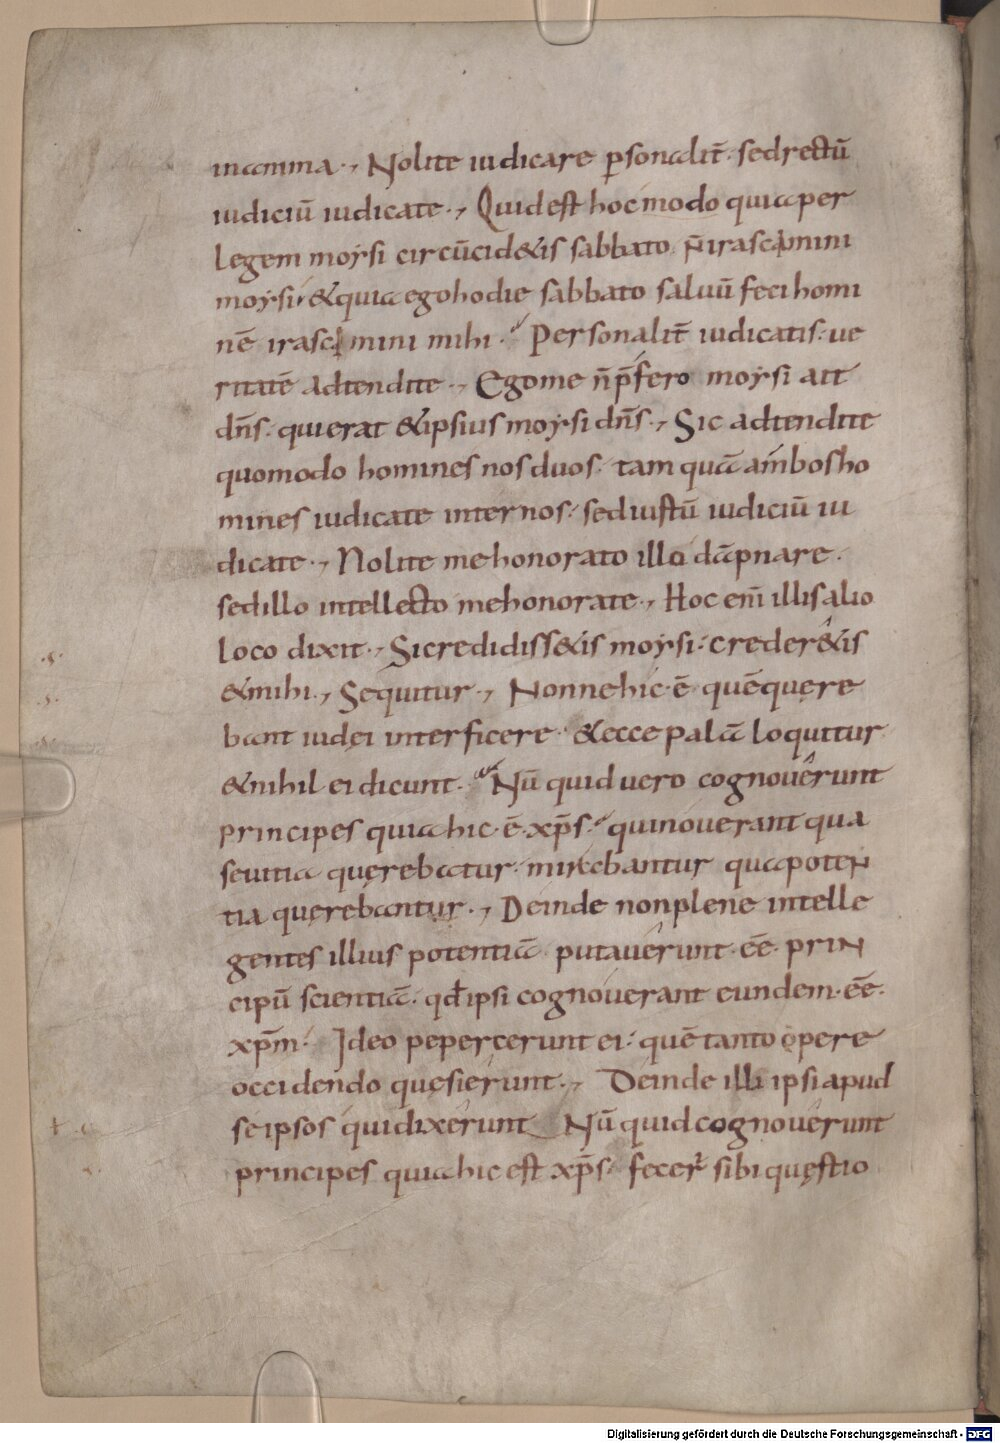 in anima ·, Nolite iudicare p̲sonalit̄ · sed rectū
iudiciū iudicate ·, Quid est hoc modo quia per
legem moysi circūcid&is sabbato n̄ irascimini
moysi · & quia ego hodie sabbato saluū feci homi
nē irascimini mihi · Personalit̄ iudicatis · ue
ritatē adtendite ·, Ego me n̄ p̄fero moysi ait
dn̄s · qui erat & ipsius moysi dn̄s ·, Sic adtendite
quomodo homines nos duos · tam quā ambos ho
mines iudicate inter nos · sed iustū iudiciū iu
dicate ·, Nolite me honorato illū dāpnare ·
sed illo intellecto me honorate ·, Hoc eni͂ illis alio
loco dixit ·, Si credidiss&is moysi · creder&is
& mihi ·, Sequitur ·, Nonne hic · ē · quē quęre
bant iudęi interficere · & ecce palā loquitur
& nihil ei dicunt · Nū quid uero cognouerunt
principes quia hic · ē · xp̄s · qui nouerant qua
seuitia quęrebatur · mirabantur qua poten
tia quęrebantur ·, Deinde non plene intelle
gentes illius potentiā · putauerunt · eē · prin
cipū scientiā · qđ ipsi cognouerant eundem · eē ·
xp̄m · Ideo pepercerunt ei · quē tanto opere
occidendo quęsierunt ·, Deinde illi ipsi apud
se ipsos qui dixerunt Nū quid cognouerunt
principes quia hic est xp̄s · fecer̄ sibi quęstio
Digitalisierung gefördert durch die Deutsche Forschungsgemeinschaft - DFG